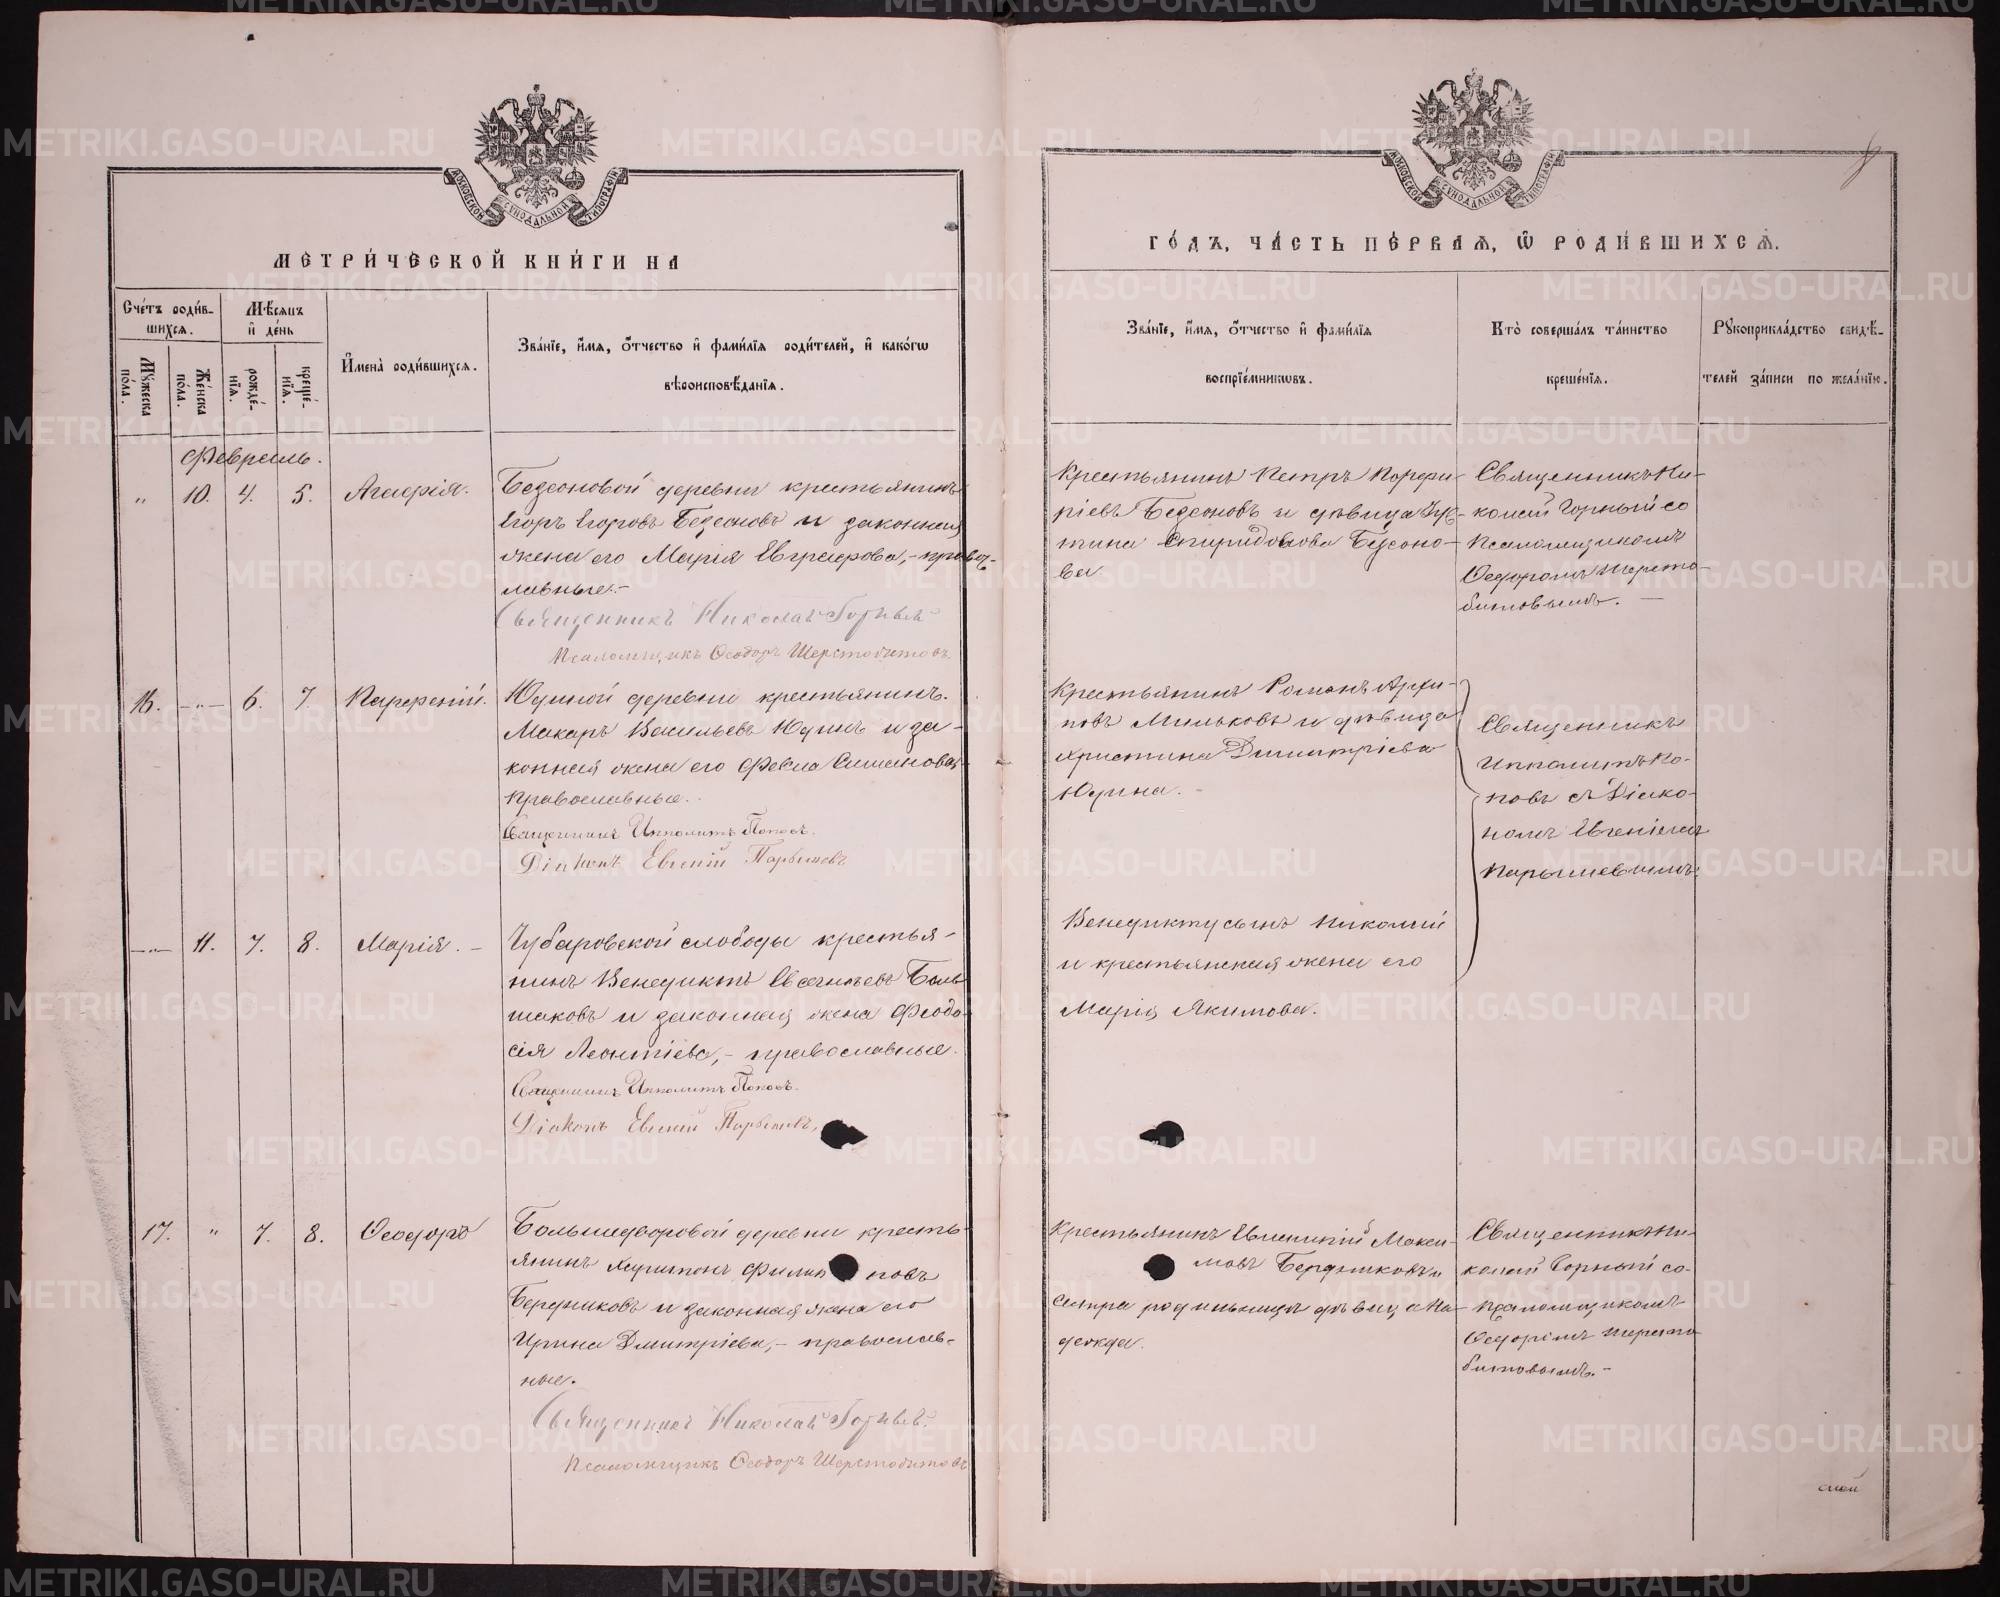 МОСКОВСКОЙ СѴНОДАЛЬНОЙ ТИПОГРАФІИ
МЕТРИ́ЧЕСКОЙ КНИ́ГИ НА
Сче́тъ роди́в-
шихся.
Мѣ́сяцъ
и҆ де́нь
И҆мена̀ роди́вшихся.
Зва́нїе, и҆́мя, ѻ҆́тчество и҆ фами́лїя роди́телей, и҆ како́гѡ
вѣроисповѣ́данїя.
Мꙋ́жеска
по́ла.
Же́нска
по́ла.
рожде́-
нїя.
креще́-
нїя.
Февраль.
„ 10. 4. 5. Агафія.
Безсоновой деревни крестьянинъ
Егоръ Егоровъ Безсоновъ и законная
жена его Марія Евграфова, - правос-
лавные. -
Священникъ Николай Горный
Псаломщикъ Ѳеодоръ Шерстобитовъ
16. -„- 6. 7. Парѳеній.
Юдиной деревни крестьянинъ
Макаръ Васильевъ Юдинъ и за-
конная жена его Фекла Симеонова
православные.
Священникъ Ипполитъ Поповъ.
Діаконъ Евгеній Парышевъ
-„- 11. 7. 8. Марія. -
Чубаровской слободы крестья-
нинъ Венедиктъ Евсегніевъ Боль
шаковъ и законная жена Феодо-
сія Леонтіева, - православные.
Священникъ Ипполитъ Поповъ.
Діаконъ Евгеній Парышевъ,
17. „ 7. 8. Ѳеодоръ
Большедворовой деревни кресть-
янинъ Харитонъ Филип повъ
Бердниковъ и законная жена его
Ирина Дмитріева, - православ-
ные.
Священникъ Николай Горный
Псаломщикъ Ѳеодоръ Шерстобитовъ
МОСКОВСКОЙ СѴНОДАЛЬНОЙ ТИПОГРАФІИ
ГО́ДЪ, ЧА́СТЬ ПЕ́РВАЯ, Ѡ҆ РОДИ́ВШИХСЯ.
Зва́нїе, и҆́мя, ѻ҆́тчество и҆ фами́лїя
воспрїе́мникѡвъ.
Кто̀ соверша́лъ та́инство
креще́нїя.
Рꙋкоприкла́дство свидѣ́-
телей за́писи по жела́нїю.
Крестьянинъ Петръ Порфи-
ріевъ Безсоновъ и дѣвица Іус-
тина Спиридонова Безсоно-
ва
Священникъ Ни-
колай Горный со
псаломщикомъ
Ѳеодоромъ Шерсто-
битовымъ. -
Крестьянинъ Романъ Архи-
повъ Мильковъ и дѣвица
Христина Димитріева
Юдина. -
Священникъ
Ипполитъ По-
повъ съ Діако-
номъ Евгеніемъ
Парышевымъ.
Венедикту сынъ Николай
и крестьянская жена его
Марія Якимова.
Крестьянинъ Макси-
мовъ Бердниковъ и
сестра родильницы дѣвица На-
дежда.
Священникъ Ни-
колай Горный со
псаломщикомъ
Ѳеодоромъ Шерсто
битовымъ. -
METRIKI.GASO-URAL.RU